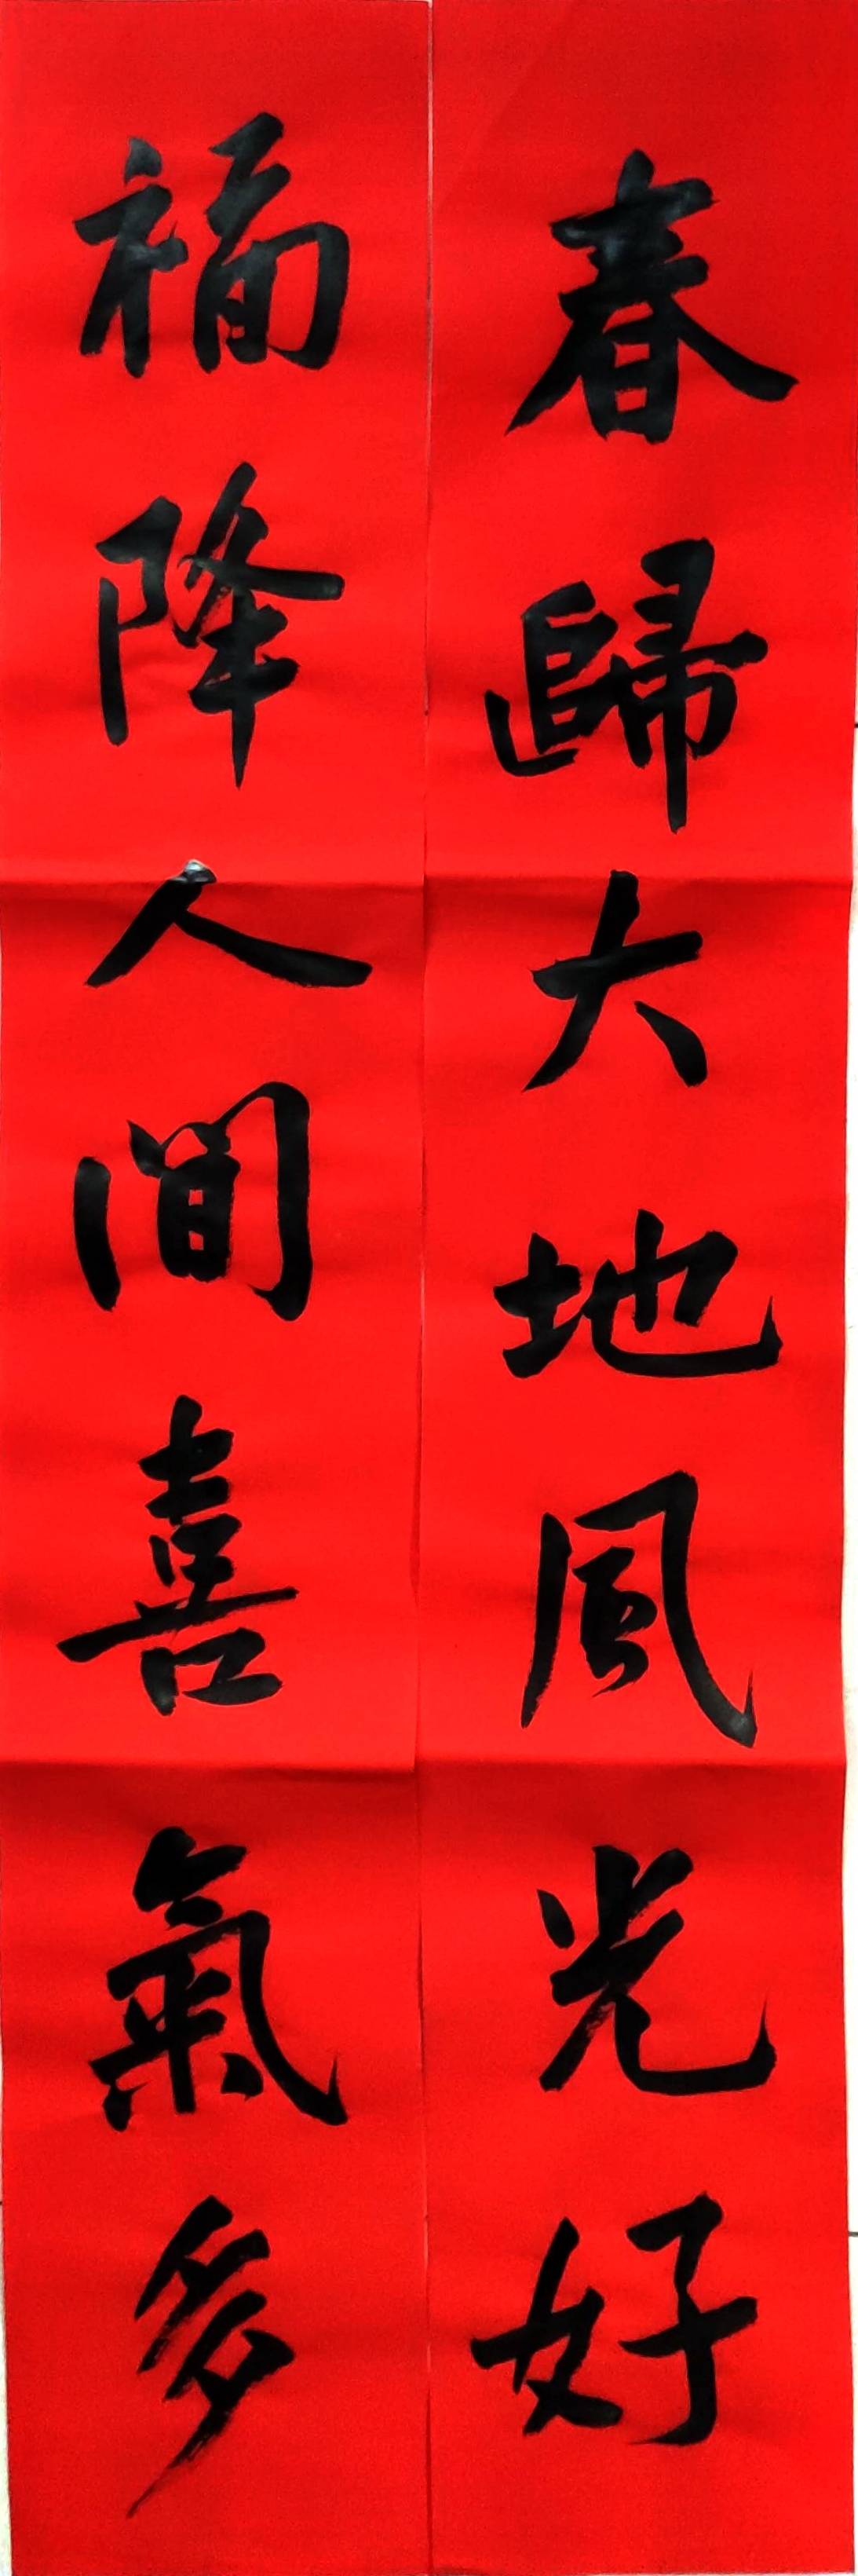 春歸大地風光好
福降人間喜氣多